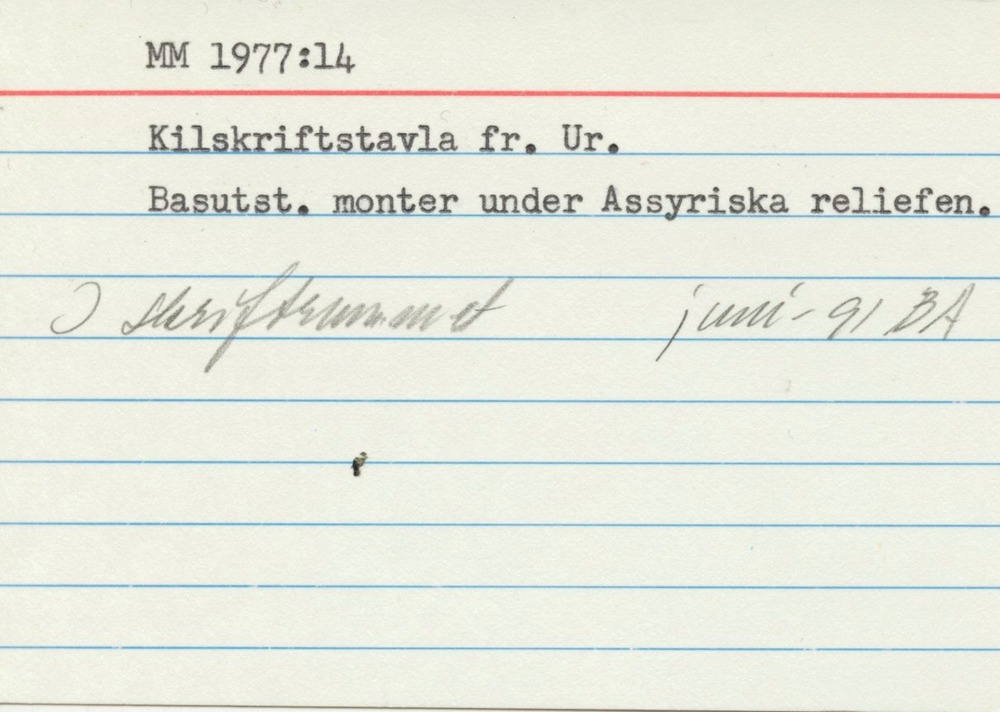 MM 1977:14
Kilskriftstavla fr. Ur.
Basutst. monter under Assyriska reliefen.
I skriftrummet juni - 91 BA